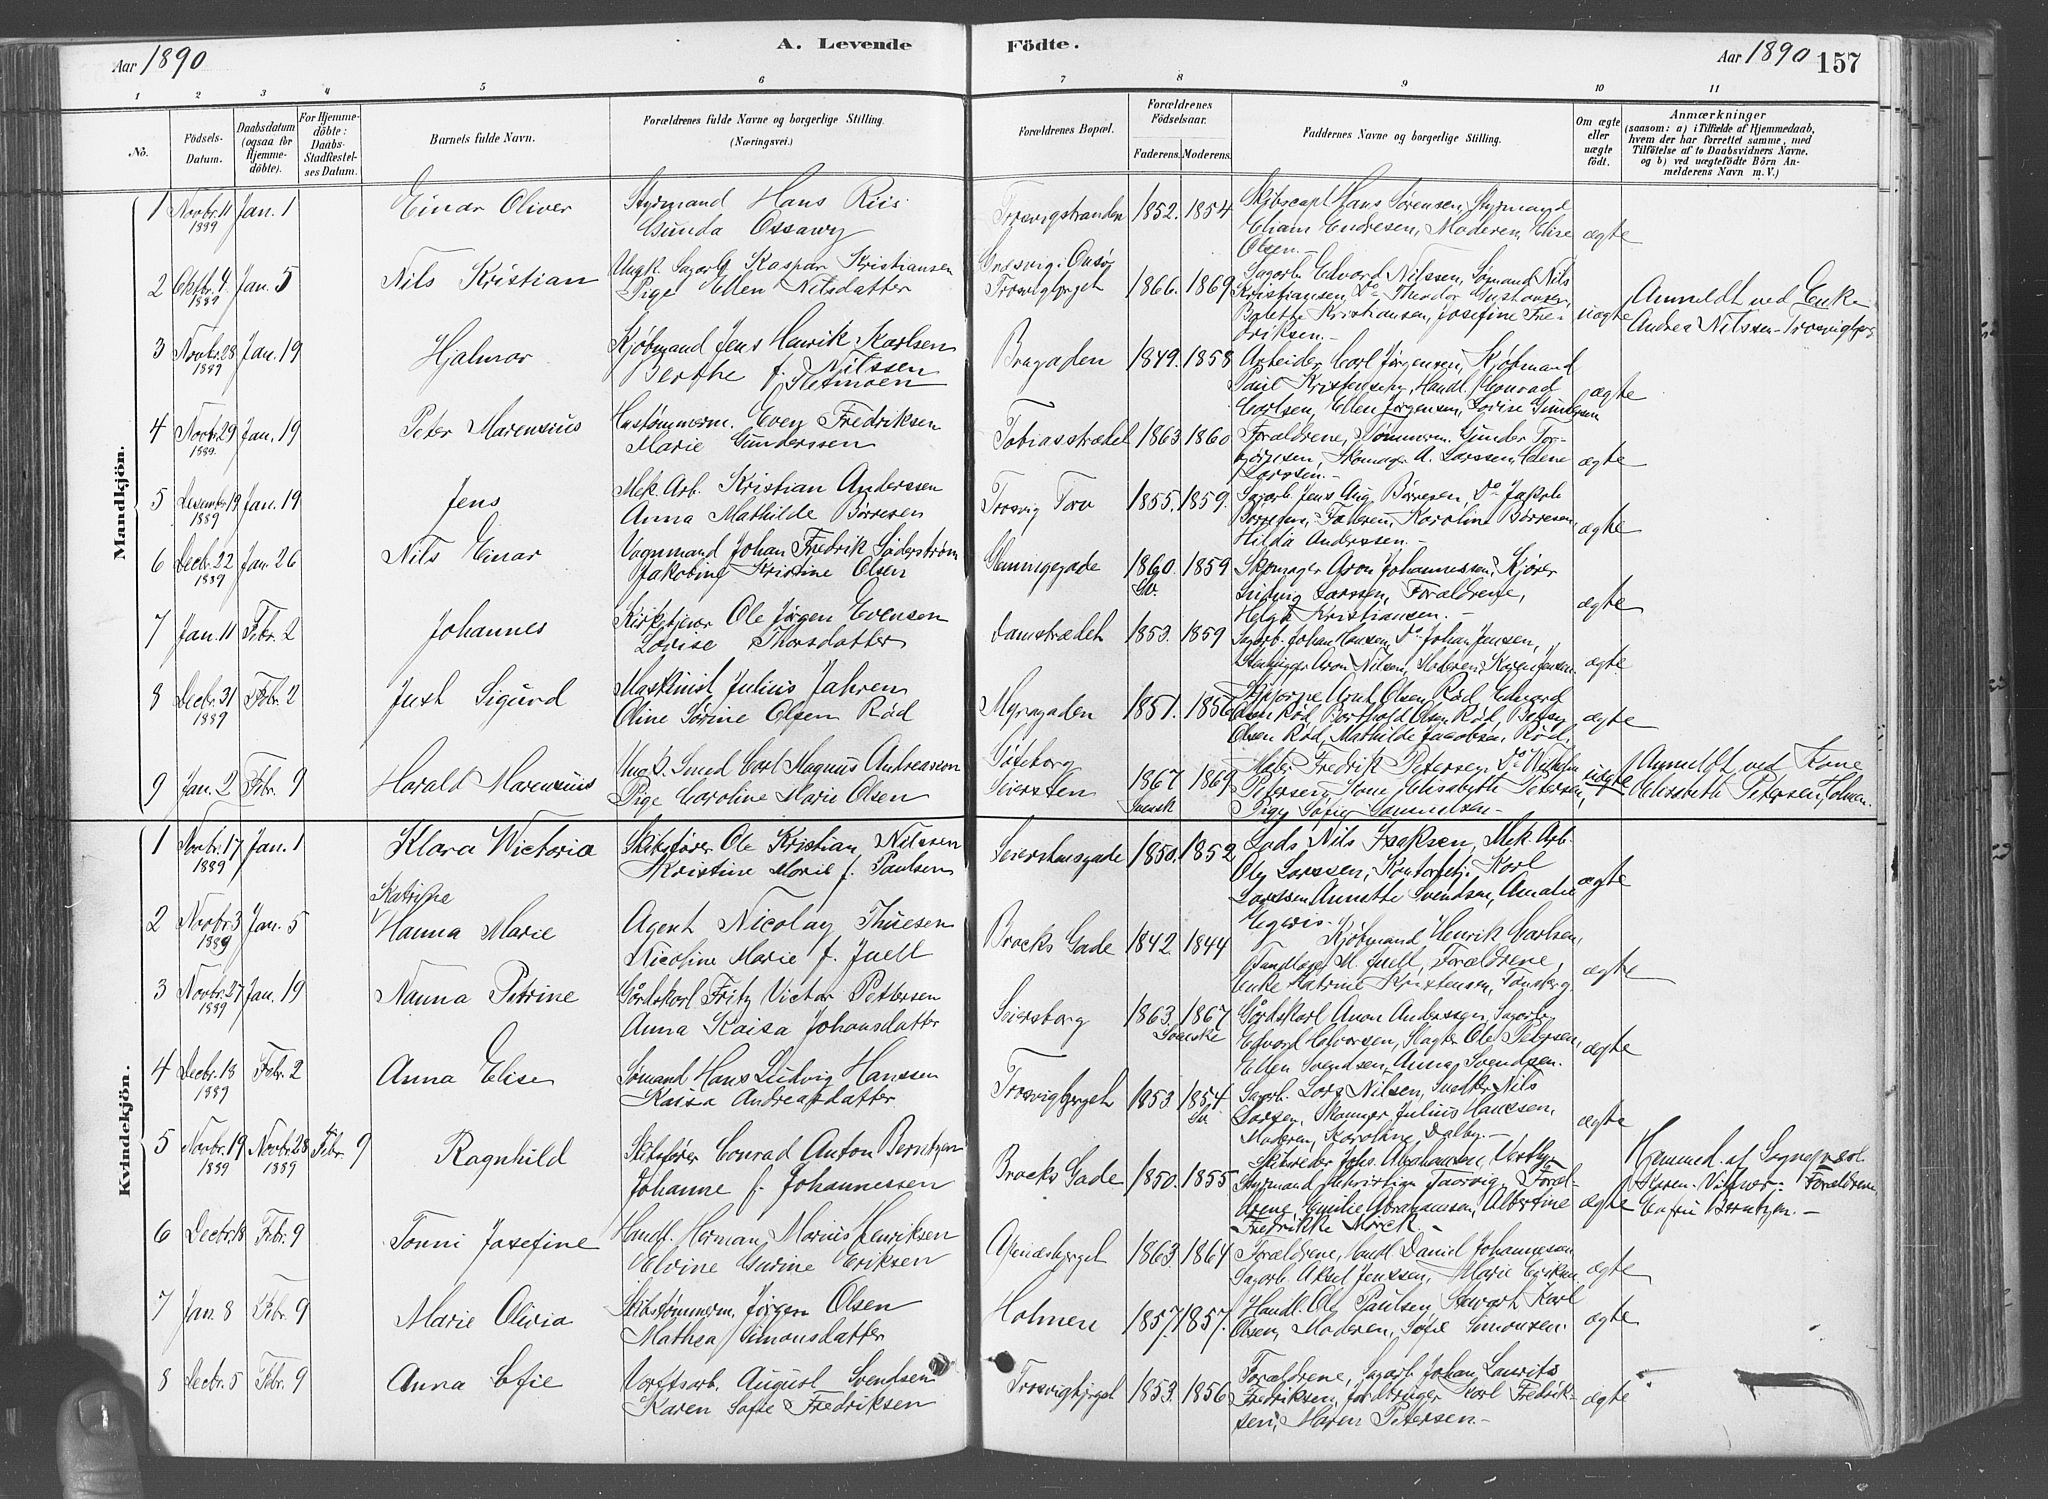 Aar 1890
A. Levende
Födte.
Aar 1890
157
1 2 3 4 5 6 7 8 9 10 11
No.
Födsels-Datum.
Daabsdatum (ogsaa for Hjemmedöbte).
For Hjemmedöbte: Daabs-Stadfæstelses Datum.
Barnets fulde Navn.
Forældrenes fulde Navne og borgerlige Stilling. (Næringsvei.)
Forældrenes Bopæl.
Forældrenes Födselsaar.
Faderens. Moderens.
Faddernes Navne og borgerlige Stilling.
Om ægte eller uægte födt.
Anmærkninger (saasom: a) i Tilfælde af Hjemmedaab, hvem der har forrettet samme, med Tilföielse af to Daabsvidners Navne, og b) ved uægtefödte Börn Anmelderens Navn m. V.)
Mandkjön.
1 Novbr. 11 1889 Jan. 1 Einar Oliver Styrmand Hans Riis Gunda Ossawy Trosvigstranden 1852. 1854 Skibscapt Hans Sørensen, Styrmand
Endresen, Moderen, Elise
Olsen.- ægte
2 Oktbr. 4. 1889 Jan. 5 Nils Kristian Ungk. Sagarb Kaspar Kristiansen Pige Ellen Nilsdatter Onsø Trosvigbjerget 1866. 1869 Sagarb. Edvard Nilssen, Sømand Nils
Kristiansen, Do Theodor Gustavsen,
Bolette Kristiansen, Josefine Fre-
driksen.- uægte Anmeldt ved Enke
Andrea Nilssen-Trosvigbjerg
3 Novbr. 28 1889 Jan. 19 Hjalmar Kjøbmand Jens Henrik Karlsen Berthe f. Nilssen Sletmoen Brogaden 1849. 1858 Arbeider Carl Jørgensen, Kjøbmand
Paul Kristensen, Handl. Conrad
Carlsen, Ellen Jørgensen, Lovise Gundersen ægte
4 Novbr. 29 1889. Jan. 19 Peter Marensius Hustømmerm. Even Fredriksen Marie Gunderssen Tobiasstrædet 1863 1860 Forældrene, Tømmerm. Gunder Tor-
gersen, Skomager A. Larssen, Helene
Larssen.- ægte
5 Desember 19 1889 Jan. 19 Jens Mek. Arb. Kristian Anderssen Anna Mathilde Børresen Trosvig Torv 1855. 1859. Sagarb. Jens Aug. Børresen, Do Jakob
Børresen, Faderen, Karoline Børresen,
Hilda Anderssen.- ægte
6 Decbr. 22 1889 Jan. 26 Nils Einar Vognmand Johan Fredrik Søderstrøm Jakobine Kristine Olsen Glemmegade 1860. Sv. 1859 Skomager Aron Johannessen, Kjører
Ludvig Larssen, Forældrene,
Helga Kristiansen.- ægte
7 Jan. 11 Febr. 2 Johannes Kirketjener Ole Jørgen Evensen Lovise Thorsdatter Damstrædet 1853. 1859 Sagarb. Johan Hansen, Do Johan Jensen,
Stenhugger Aron Nilsen, Moderen, Karen Jensen ægte
8 Decbr. 31 1889 Febr. 2 Just Sigurd Maskinist Julius Jahren Oline Sørine Olsen Rød Myragaden 1851. 1856 Arnt Olsen Rød, Edvard
Olsen Rød, Berthold Olsen Rød, Betsy
Olsen Rød, Mathilde Jacobsen, Rød. ægte
9 Jan. 2 Febr. 9 Harald Marensius Ungk. Smed Carl Magnus Andreasson Pige Caroline Marie Olsen Gøteborg Seiersten 1867 Svensk 1869 Maler Fredrik Petersen, Do Wilhelm
Petersen, Kone Elisabeth Petersen,
Pige Sofie Samuelsen.- uægte Anmeldt ved Kone
Elisabeth Petersen, Holmen.
Kvindekjön.
1 Novbr. 17 1889 Jan. 1 Klara Wictoria Skibsfører Ole Kristian Nilssen Kristine Marie f. Paulsen Seierstensgade 1850. 1852 Lods Nils Isaksen, Mek. Arb.
Ole Larssen, Kontorbetj. Karl
Larssen Annette Svendsen, Amalie
ægte
2 Novbr. 3 1889 Jan. 5 Katrine Hanna Marie Agent Nicolay Thuesen Nicoline Marie f. Juell Brocks Gade 1842. 1844 Kjøbmand Henrik Carlsen,
Tandlæge M. Juell, Forældrene,
Enke Katrine Kristensen, Tønsberg ægte
3 Novbr. 27 1889 Jan. 19 Nanna Petrine Gårdskarl Fritz Victor Pettersen Anna Kaisa Johansdatter Seiersborg 1863. 1867 Svenske Gårdskarl Aron Anderssen, Sagarb.
Edvard Halvorsen, Slagter Ole Petersen,
Ellen Svendsen, Anna Svendsen. ægte
4 Decbr. 18 1889 Febr. 2 Anna Elise Sømand Hans Ludvig Hanssen Kaisa Andreasdatter Trosvigbjerget 1853. 1854 Sv. Sagarb. Lars Nilsen, Snedker Nils
Larsen, Skomager Julius Hanssen,
Moderen, Karoline Dalby.- ægte
5 Novbr. 19 1889 Novbr. 28 1889 Febr. 9 Ragnhild Skibsfører Conrad Anton Berntzen Johanne f. Johannessen Brocks Gade 1850. 1855 Skibsreder Johs. Abrahamsen,
Styrmand Christian Foral-
drene, Emilie Abrahamsen, Albertine
Fredrikke Mørck.- ægte Hjemmed. af Sognepræst
Forældrene
Berntzen.-
6 Decbr. 18 Febr. 9 Tonni Josefine Handl. Herman Marius Henriksen Elvine Gurine Eriksen Apenæsbjerget 1863. 1864 Forældrene, Handl Daniel Johannessen
Sagarb. Aksel Jenssen, Marie Eriksen ægte
7 Jan. 8 Febr. 9 Marie Olivia Skibstømmerm. Jørgen Olsen Mathea Simonsdatter Holmen 1857. 1857. Handl. Ole Paulsen, Stewart Karl
Olsen, Moderen, Sofie Simonsen. ægte
8 Decbr. 5 Febr. 9 Anna Sofie Værftsarb. August Svendsen Karen Sofie Fredriksen Trosvigbjerget 1853. 1856 Forældrene, Sagarb Johan Laurits
Fredriksen, Karl Fredrik-
sen, Maren Petersen.- ægte